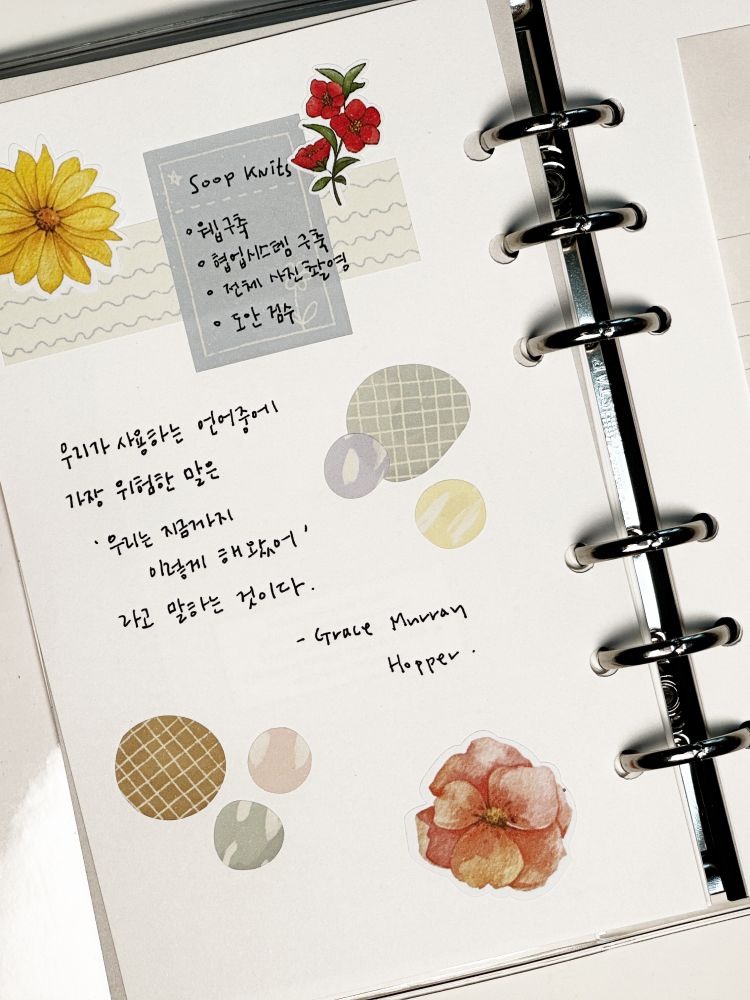 Soop Knits
• 웹구축
• 협업시스템 구축
• 전체 사진촬영
• 도안 검수
우리가 사용하는 언어중에
가장 위험한 말은
'우리는 지금까지
이렇게 해왔어'
라고 말하는 것이다.
- Grace Murray
Hopper.